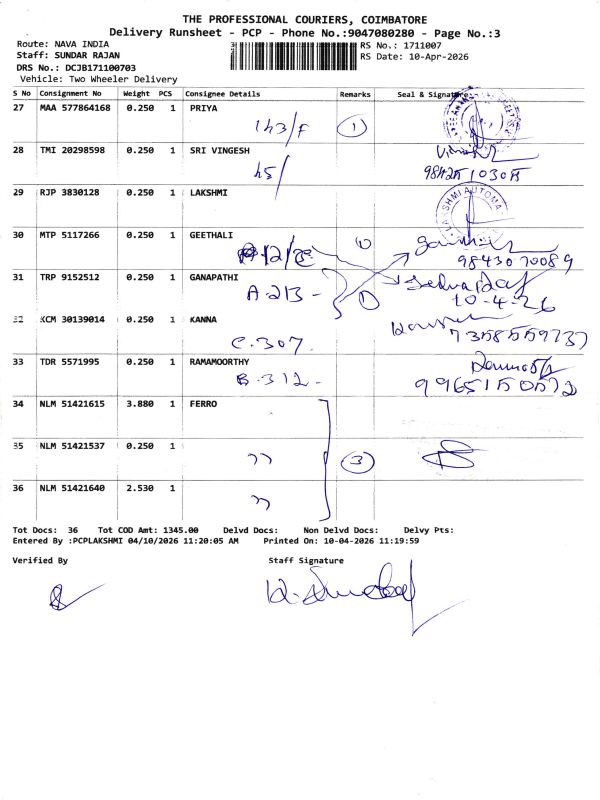 THE PROFESSIONAL COURIERS, COIMBATORE
Delivery Runsheet - PCP - Phone No.:9047080280 - Page No.:3
Route: NAVA INDIA
RS No.: 1711007
Staff: SUNDAR RAJAN
RS Date: 10-Apr-2026
DRS No.: DCJB171100703
Vehicle: Two Wheeler Delivery
S No Consignment No Weight PCS Consignee Details Remarks Seal & Signature
27 MAA 577864168 0.250 1 PRIYA
143/F 1
28 TMI 20298598 0.250 1 SRI VINGESH
45/
29 RJP 3830128 0.250 1 LAKSHMI
LAKSHMI AUTOMA
30 MTP 5117266 0.250 1 GEETHALI
12/C 1
9843070089
31 TRP 9152512 0.250 1 GANAPATHI
A.213 - 1
10-4-26
32 KCM 30139014 0.250 1 KANNA
C.307
7358559737
33 TDR 5571995 0.250 1 RAMAMOORTHY
B.312 -
9965150572
34 NLM 51421615 3.880 1 FERRO
35 NLM 51421537 0.250 1
,, 3
36 NLM 51421640 2.530 1
,,
Tot Docs: 36 Tot COD Amt: 1345.00 Delvd Docs: Non Delvd Docs: Delvy Pts:
Entered By :PCPLAKSHMI 04/10/2026 11:20:05 AM Printed On: 10-04-2026 11:19:59
Verified By Staff Signature